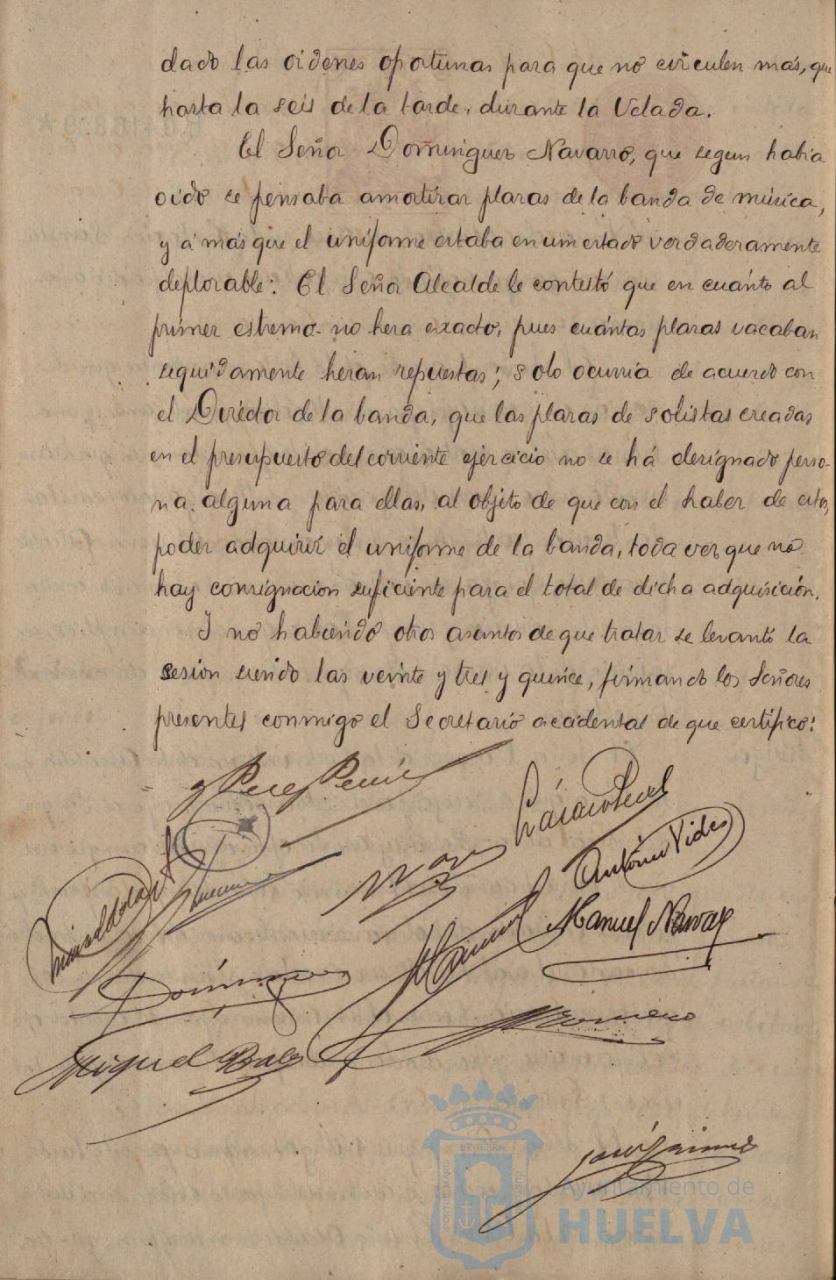 dado las oidenes oportunas para que no circulen más, que
hasta la seis de la tarde, durante la Velada.
El Señor Dominguez Navarro, que segun habia
oido se pensaba amortizar plazas de la banda de música,
y á más que el uniforme estaba en un estado verdaderamente
deplorable: El Señor Alcalde le contestó que en cuánto al
primer estremo no hera exacto, pues cuántas plazas vacaban
seguidamente heran repuestas; solo ocurria de acuerdo con
el Diréctor de la banda, que las plazas de solistas creadas
en el presupuesto del corriente ejercicio no se há designado perso-
na alguna para ellas, al objéto de que con el haber de estos,
poder adquirir el uniforme de la banda, toda vez que no
hay consignacion suficiente para el total de dicha adquisición.
I no habiendo otros asuntos de que tratar se levantó la
sesion siendo las veinte y tres y quince, firmando los Señores
presentes conmigo el Secretario accidental de que certifico:
Antonio Vides
Manuel Navar
Domin
Romero
Miguel
José
Ayuntamiento de
HUELVA